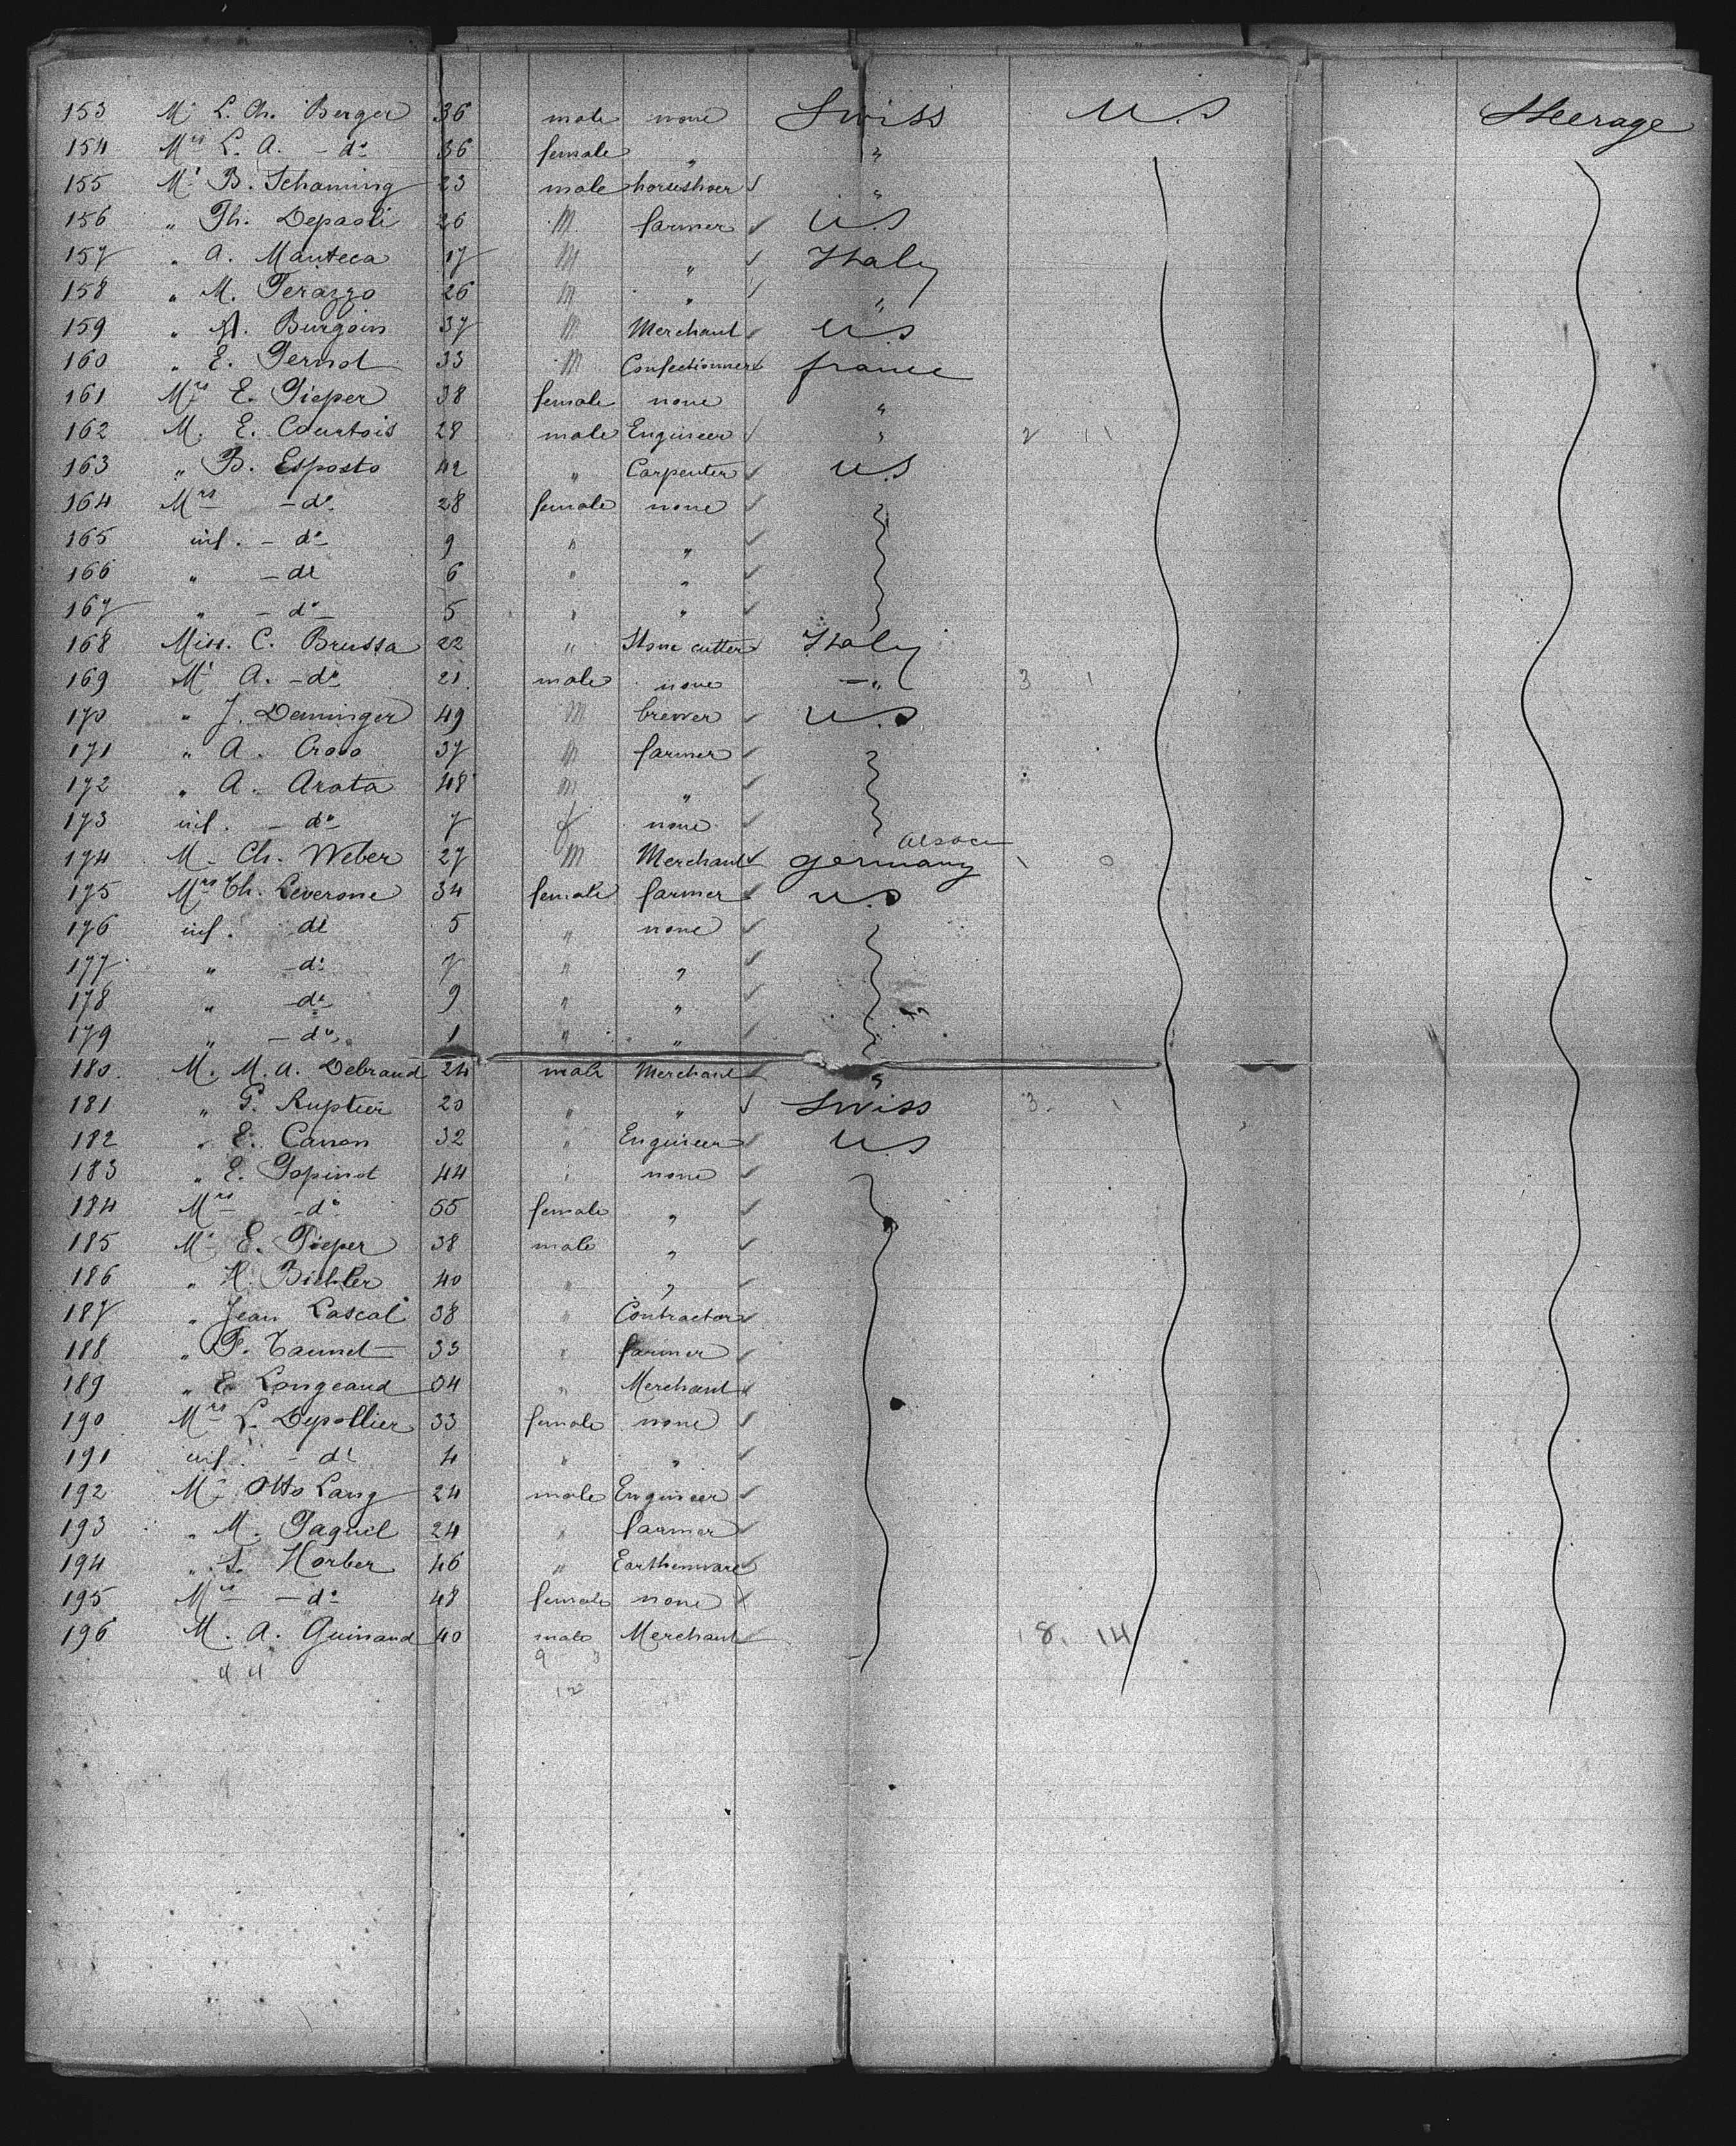 153 Mr L. Ch. Berger 36 male none Swiss U.S Steerage
154 Mrs L. A. - do 36 female " "
155 Mr B. Schaming 23 male horseshoer "
156 " Th. Depaoli 26 M farmer U.S
157 " A. Manteca 17 M " Italy
158 " M. 26 M " "
159 " A. Burgoin 37 M Merchant U.S
160 " E. Pernot 33 M Confectioner france
161 Mrs E. Pieper 38 female none "
162 M. E. Courtois 28 male Engineer " 2 11
163 " B. Esposto 42 " Carpenter U.S
164 Mrs - do 28 female none
165 inf. - do 9 " "
166 " - do 6 " "
167 " - do 5 " "
168 Miss. C. Brussa 22 " Stone cutter Italy
169 Mr A. - do 21 male none - " 3 1
170 " J. Denninger 49 M brewer U.S
171 " A. 37 M farmer
172 " A. Arata 48 M "
173 inf. - do 7 f none
174 M - Ch. Weber 27 M Merchant germany alsace
175 Mrs Th. Leverone 34 female farmer U.S
176 inf. do 5 " none
177 " - do 7 " "
178 " - do 9 " "
179 " - do 1 " "
180 M. M. A. Debraud 24 male Merchant "
181 " P. Ruptier 20 " " Swiss 3. 1
182 " E. Canon 32 " Engineer U.S
183 " E. Popinot 44 " none
184 Mrs - do 55 female "
185 Mr E. Pieper 38 male "
186 " H. Bichler 40 " "
187 " Jean Lascal 38 " Contractor
188 " F. 33 " farmer
189 " E. Longeaud 34 " Merchant
190 Mrs L. Depollier 33 female none
191 inf. - do 4 " "
192 Mr Otto Lang 24 male Engineer
193 " M. 24 " farmer
194 " Horber 46 " Earthenware
195 Mrs - do 48 female none
196 M. A. Guinand 40 male Merchant 18. 14
44 9 3
12